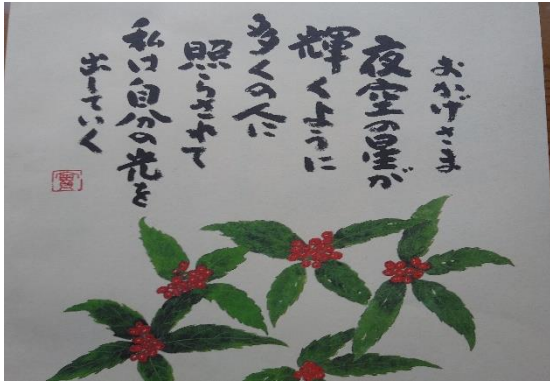 おかげさま
夜空の星が
輝くように
多くの人に
照らされて
私は自分の光を
出していく